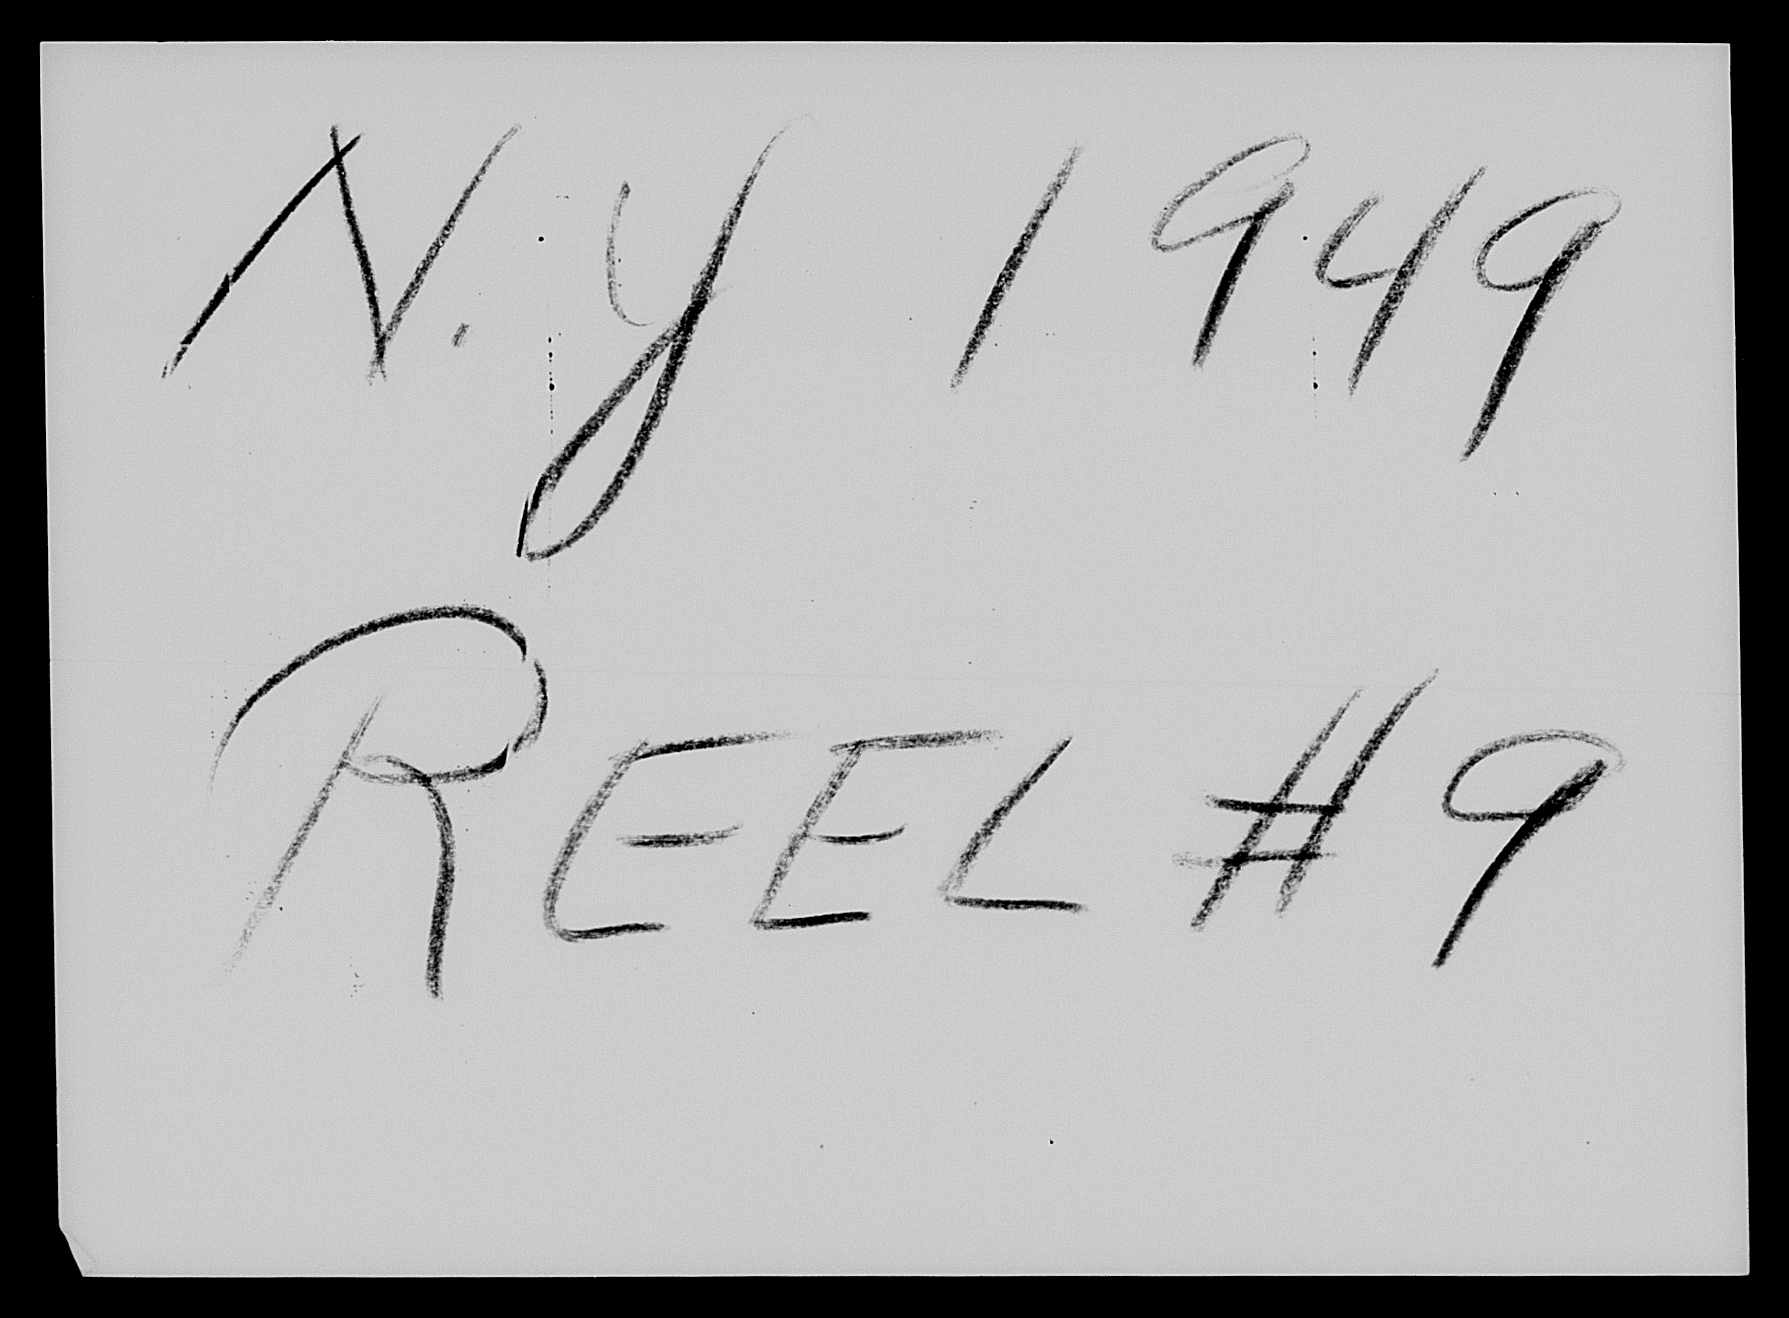 N.Y 1949
REEL #9